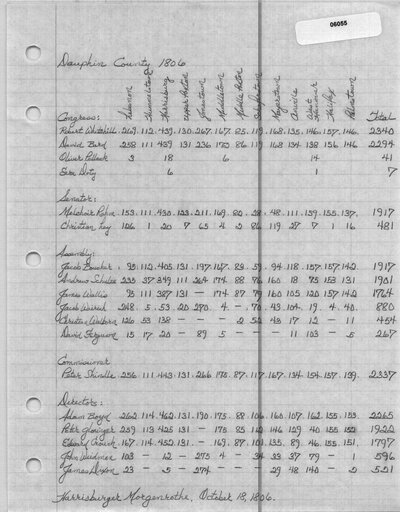 06055
Dauphin County 1806
Lebanon Harrisburg Upper Paxton Jonestown Middletown Middle Paxton Hanover Halifax
Congress: Total
Robert Whitehill 269. 112. 439. 130. 267. 167. 85. 119. 168. 135. 146. 157. 146. 2340
David Bard 258 111 439 131 236 175 86 119 168 134 138 156 146 2294
Oliver Pollock 3 18 6 14 41
Ezra Doty 6 1 7
Senator:
Melchoir Rahm 153. 111. 430. 211. 169. 80. 48. 111. 159. 155. 137. 1917
Christian Ley 106 1 20 7 65 4 2 86 119 27 7 1 16 481
Assembly:
Jacob Boucher 95. 112. 405. 131. 197. 94. 118. 157. 157. 142. 1917
Andrew Schulze 235 37 349 111 264 174 88 76 160 18 75 153 131 1901
James Wallis 95 111 387 131 — 174 87 79 160 105 120 157 142 1764
Jacob 248. 5. 53. 20 4. 43. 104. 19. 4. 40. 880
Christian 126 53 138 — — — 2 52 43 17 12 — 11 454
David Ferguson 15 17 20 — 89 5 — — — 11 103 — 5 267
Commissioner
Peter Shindle 256. 111. 443. 131. 266. 175. 87. 117. 167. 134. 154. 157. 139. 2337
Directors:
Adam Boyd 262. 114. 462. 131. 190. 175. 88. 106. 160. 157. 162. 155. 153. 2265
Peter 259 113 425 131 — 175 85 112 146 129 40 155 152 1922
Edward Crouch 167. 114. 452. 131. — 169. 87. 101. 135. 89. 46. 155. 151. 1797
John Weidman 103 — 12 — 275 4 — 34 33 37 79 — 1 596
James Dixon 23 — 5 — 274 — — — 29 48 140 — 2 521
Harrisburger Morgenrothe, October 18, 1806.